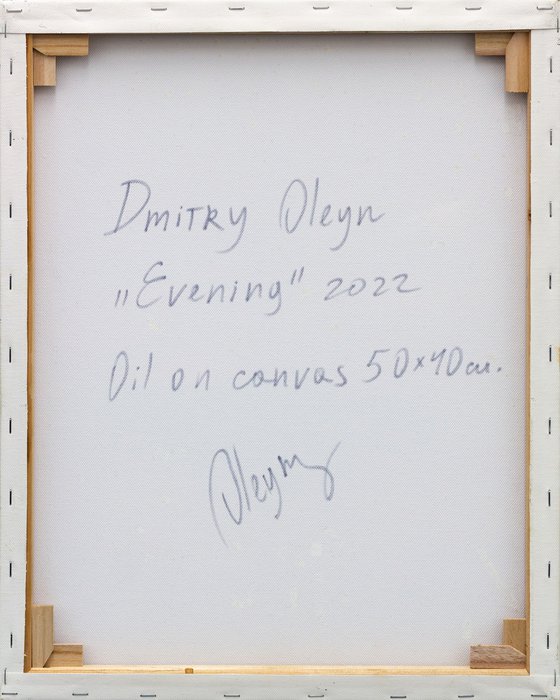 Dmitry Oleyn
„Evening" 2022
Oil on canvas 50×40см.
Oleyn